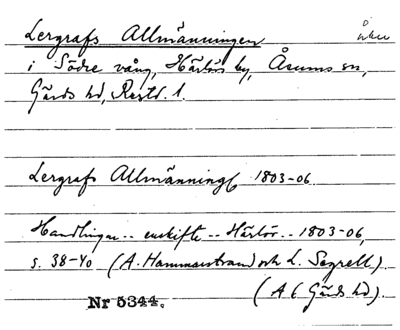 Lergrafs Allmänningen åker
i Södre vång, Härlövs by, Åsums sn,
Gärds hd, Restl. 1.
Lergrafs Allmänning 1803-06
Handlingar -- enskifte -- Härlöv -- 1803-06,
s. 38-40 (A. Hammarstrand och L. Segrell).
(A 6 Gärds hd).
Nr 5344.